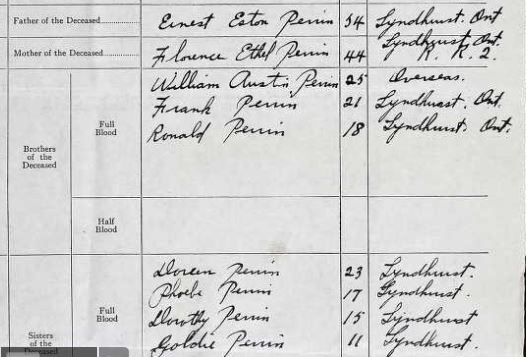 Father of the Deceased Ernest Eston Perrin 54 Lyndhurst. Ont
Mother of the Deceased Florence Ethel Perrin 44 Lyndhurst, Ont. R. R. 2.
William Austin Perrin 25 Overseas.
Frank Perrin 21 Lyndhurst, Ont.
Ronald Perrin 18 Lyndhurst, Ont.
Full Blood
Brothers of the Deceased
Half Blood
Doreen Perrin 23 Lyndhurst.
Phoebe Perrin 17 Lyndhurst.
Dorothy Perrin 15 Lyndhurst
Goldie Perrin 11 Lyndhurst.
Full Blood
Sisters of the Deceased